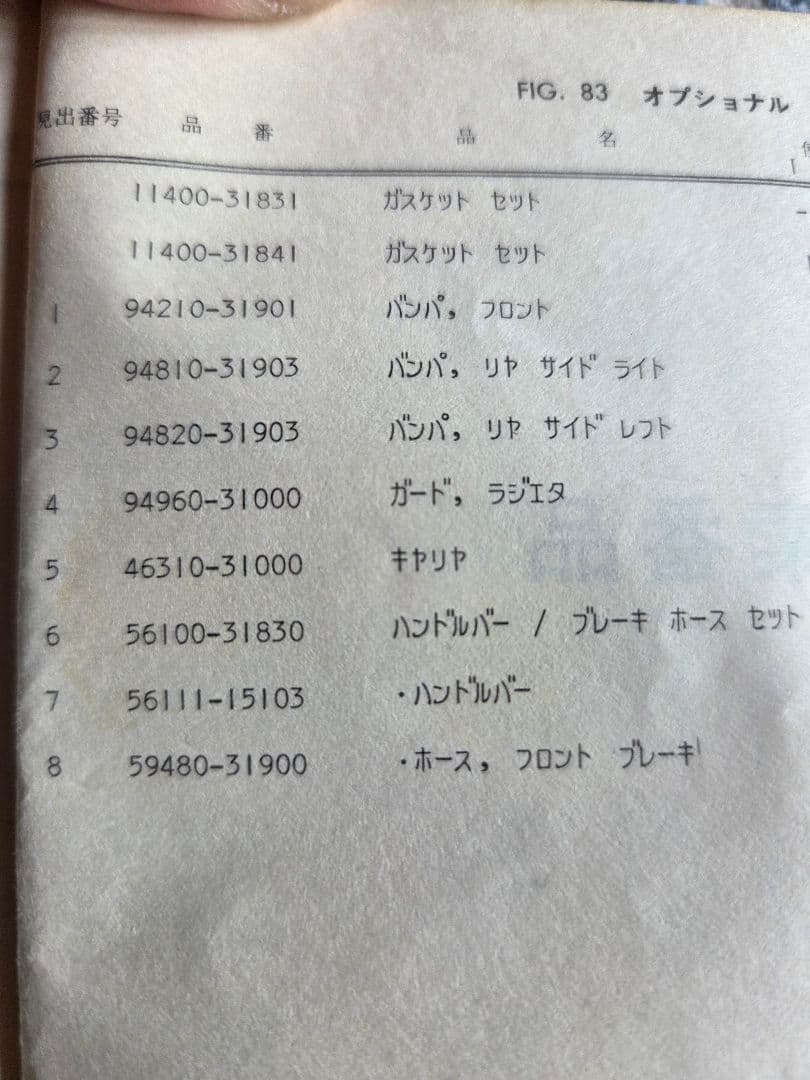 FIG. 83 オプショナル
見出番号 品 番 品 名
11400-31831 ガスケット セット
11400-31841 ガスケット セット
1 94210-31901 バンパ, フロント
2 94810-31903 バンパ, リヤ サイド ライト
3 94820-31903 バンパ, リヤ サイド レフト
4 94960-31000 ガード, ラジエタ
5 46310-31000 キヤリヤ
6 56100-31830 ハンドルバー / ブレーキ ホース セット
7 56111-15103 ・ハンドルバー
8 59480-31900 ・ホース, フロント ブレーキ